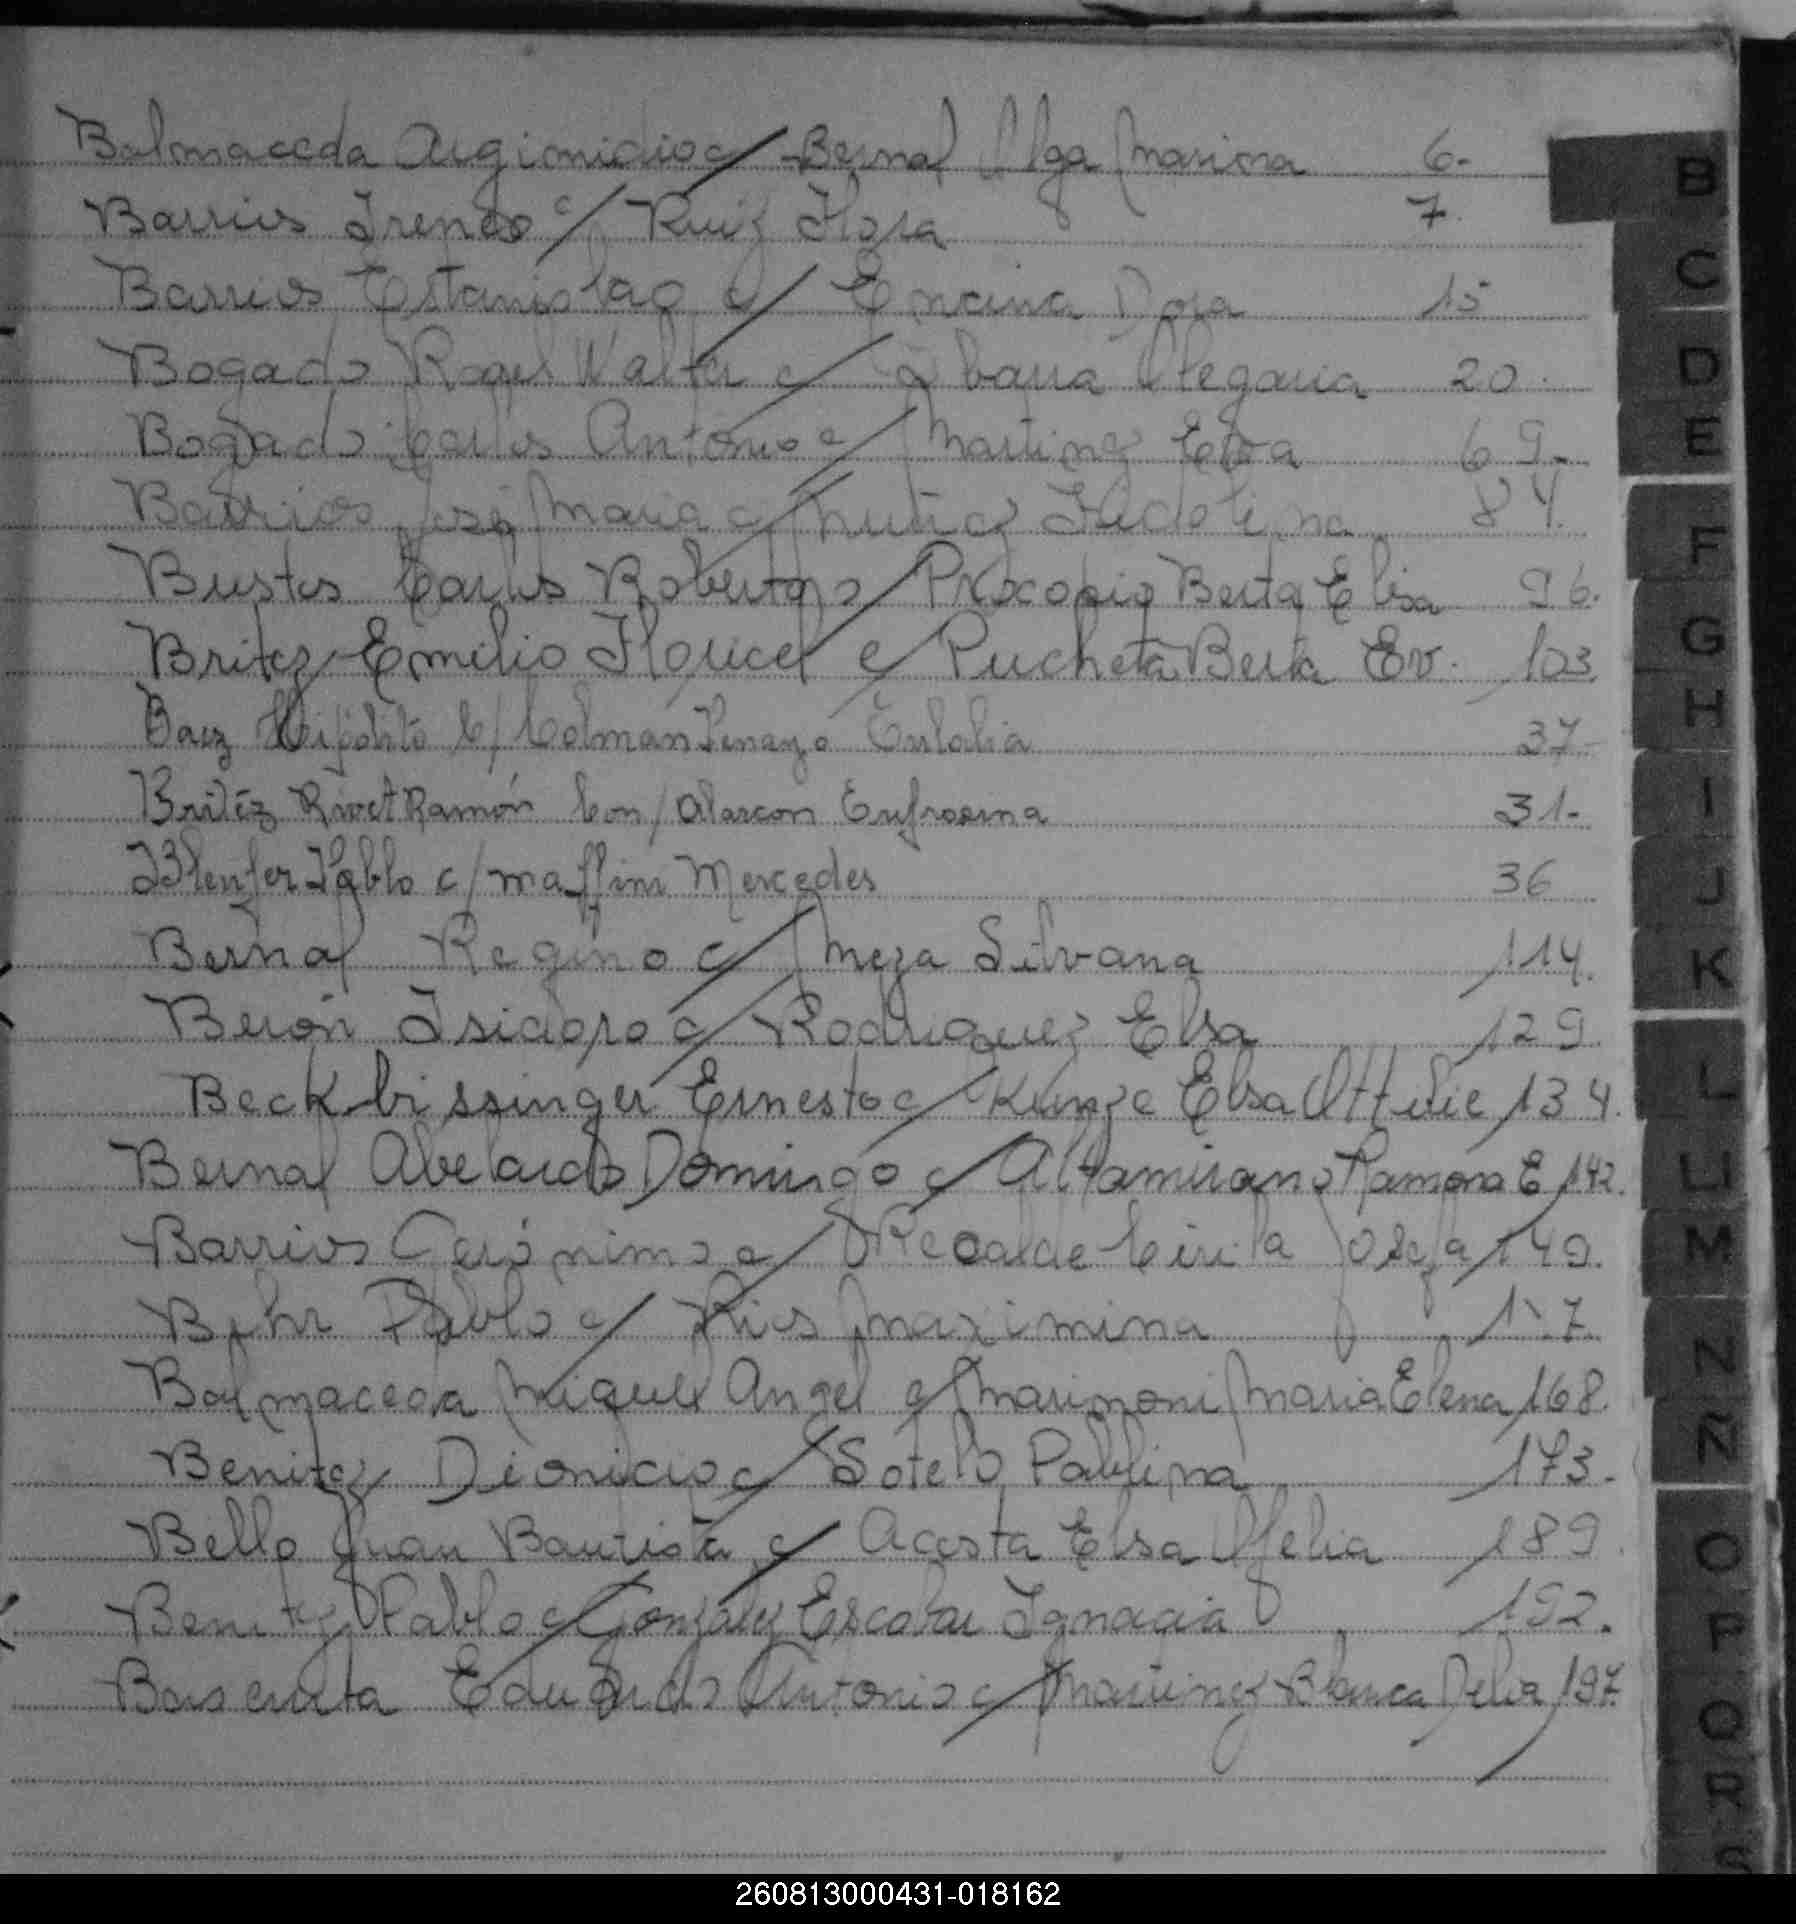 Balmaceda Argimidio c/ Bernal Olga Marina 6.-
Barrios Ireneo c/ Ruiz Flora 7.
Barrios Estanislao c/ Encina Dora 15
Bogado Roger Walter c/ Ibarra Olegaria 20.
Bogado Carlos Antonio c/ Martinez Elva 69.-
Barrios José Maria c/ Nuñez Fidelina 84.
Bustos Carlos Roberto c/ Procopio Berta Elisa 96.
Britez Emilio Floricel c/ Pucheta Berta Ev. 103.
Baez Hipólito C/ Colman Penayo Eulalia 37.-
Britéz Rivet Ramón Con/ Alarcon Eufrosina 31.-
Blenfer Pablo c/ Maffini Mercedes 36
Bernal Regino c/ Meza Silvana 114.
Berón Isidoro c/ Rodriguez Elsa 129.
Beck bissinger Ernesto c/ Kunze Elsa Ottilie 134.
Bernal Abelardo Domingo c/ Altamirano Ramona E 142.
Barrios Gerónimo c/ Recalde Cirila Josefa 149.
Pablo c/ Rios Maximina
Balmaceda Miguel Angel c/ Marimoni Maria Elena 168.
Benitez Dionicio c/ Sotelo Pablina 173.-
Bello Juan Bautista c/ Acosta Elsa Ofelia 189.
Benitez Pablo c/ Gonzalez Escobar Ignacia 192.
Eduardo Antonio c/ Martinez Blanca Delia 197.
B
C
D
E
F
G
H
I
J
K
L
LL
M
N
Ñ
O
P
Q
R
S
260813000431-018162